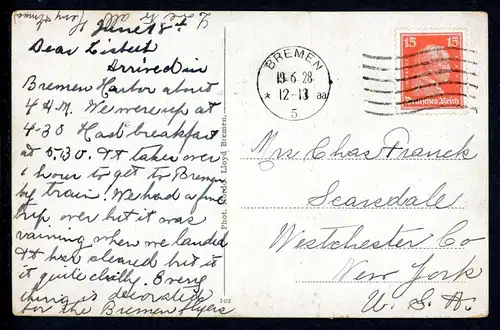 Love to all
June 18th
Dear Lisbeth
Arrived in
Bremen Harbor about
4 A.M. We were up at
4-30 Had breakfast
at 5.30. It takes over
1 hour to get to Bremen
by train! We had a fine
trip over but it was
raining when we landed
It has cleared but it
is quite chilly. Every
thing is decorated
for the Bremen flyers
Phot. Nordd. Lloyd Bremen.
102
BREMEN
19.6.28
* 12-13 aa
5
15 15
Deutsches Reich
Mrs Chas Franck
Scarsdale
Westchester Co
New York
U. S. A.